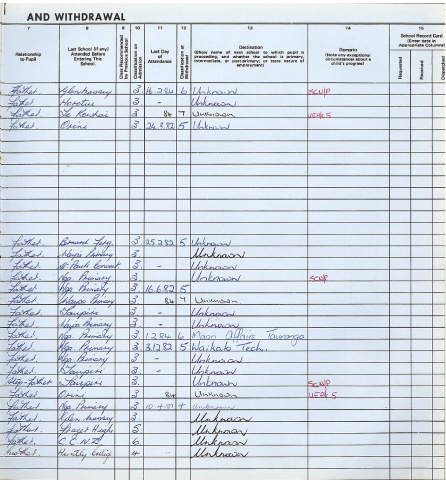 AND WITHDRAWAL
7 8 9 10 11 12 13 14 15
Relationship to Pupil
Last School (if any) Attended Before Entering This School
Class Recommended by Previous School
Classification on Admission
Last Day of Attendance
Classification at Withdrawal
Destination (Show name of next school to which pupil is proceeding, and whether the school is primary, intermediate, or post-primary; or state nature of employment)
Remarks (Note any exceptional circumstances about a child's progress)
School Record Card (Enter date in Appropriate Column)
Requested
Received
Deposited
Father Glen Massey 3 16.2.84 6 Unknown
Father 3 - Unknown
Father Te Kauhai 3 84 7 Unknown
Father Orini 3 24.3.82 5 Unknown
Father. Bernard Ferg. 3. 25.2.82 5 Unknown
Father. Primary 3. Unknown
Father. St Pauls Convent 3. - Unknown
Father. Nga. Primary 3 Unknown
Father. Nga. Primary 3 16.6.82 5
Father. Primary 3 84 7 Unknown
Father. Taupiri 3 - Unknown
Father. Primary 3. - Unknown
Father. Nga. Primary 3. 1.2.84 6 Maori Affairs Tauranga
Father. Nga. Primary 3. 3.12.82 5 Waikato Tech.
Father. Nga. Primary 3 - Unknown
Father. Taupiri 3. - Unknown
Step-Father Taupiri 3. Unknown
Father. Orini 3 84 Unknown
Father Nga Primary 3 Unknown
Father. Glen Massey 3 Unknown
Father. Fraser High 5 Unknown
Father. C.C.N.Z. 6. Unknown
Mother. Huntly College 4 - Unknown